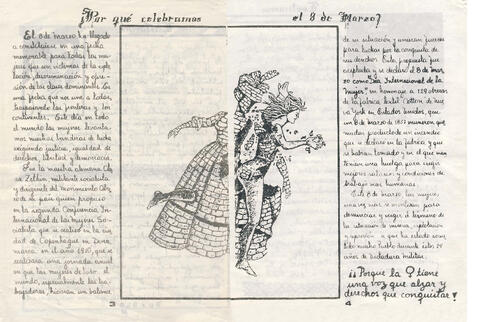 ¿Por qué celebramos el 8 de Marzo?
El 8 de marzo ha llegado
a constituirse en una fecha
memorable para todas las mu-
jeres que son víctimas de la explo-
tación, discriminación y opre-
sión de las clases dominantes. Es
una fecha que nos une a todas,
traspasando las fronteras y los
continentes. Este día en todo
el mundo las mujeres levanta-
mos nuestras banderas de lucha
exigiendo justicia, igualdad de
derechos, libertad y democracia.
Fue la maestra alemana Cla-
ra Zetkin, militante socialista
y dirigente del movimiento Obre-
ro de su país quien propuso
en la segunda Conferencia In-
ternacional de las mujeres So-
cialistas que se realizó en la ciu-
dad de Copenhague en Dina-
marca en el año 1910, que se
realizara una jornada anual
en que las mujeres de todo el
mundo, especialmente las tra-
bajadoras, hicieran un balance
3
de su situación y unieran fuerzas
para luchar por la conquista de
sus derechos. Esta propuesta fue
aceptada y se declaró el 8 de mar-
zo como "Día Internacional de la
Mujer", en homenaje a 129 obreras
de la fábrica textil Cotton de Nue-
va York en Estados Unidos, que
un 8 de marzo de 1857 murieron que-
madas producto de un incendio
que se declaró en la fábrica y que
se habían tomado y en el que man-
tenían una huelga para exigir
mejores salarios y condiciones de
trabajo más humanas.
Este 8 de marzo, las mujeres,
una vez más se movilizan para
denunciar y exigir el término de
la situación de miseria, explotación
y opresión a que ha estado some-
tido nuestro Pueblo durante estos
años de dictadura militar.
¡¡Porque la ♀ tiene
una voz que alzar y
derechos que conquistar!
4